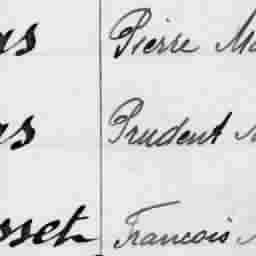 as Pierre Ma
as Prudent
sset Francois